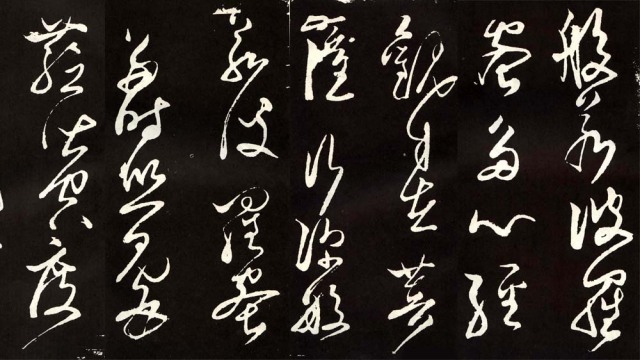 般若波羅
蜜多心經
觀自在菩
薩行深般
若波羅蜜
多時照見五
蘊皆空度